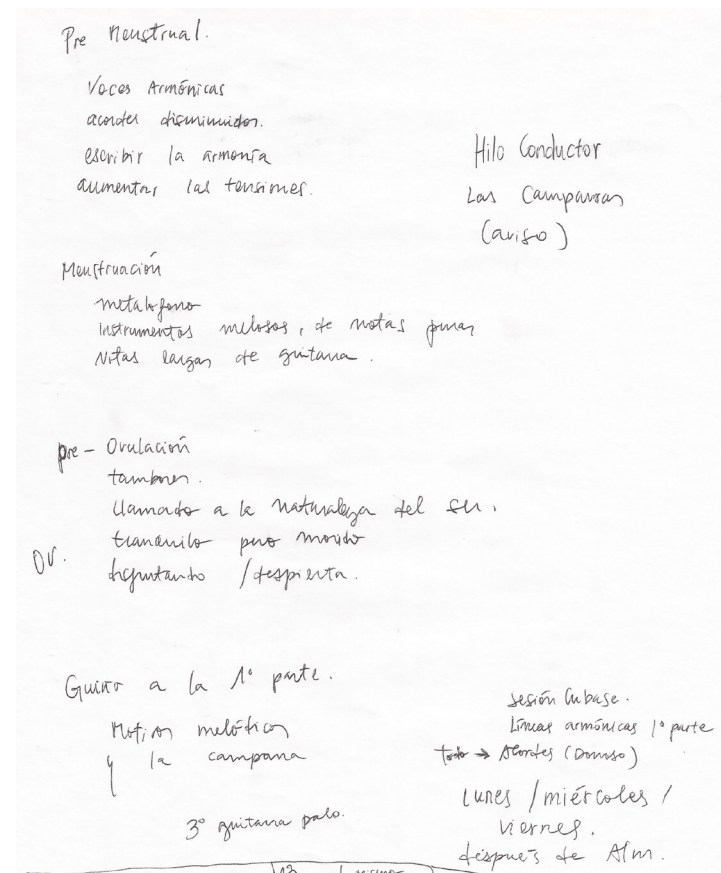 Pre Menstrual.
Voces Armónicas
acordes disminuidos.
escribir la armonía
aumentar las tensiones.
Hilo Conductor
Las Campanas
(aviso)
Menstruación
metalofono
Instrumentos melosos, de notas puras
Notas largas de guitarra.
pre - Ovulación
tambores.
llamado a la naturaleza del ser.
tranquilo pero movido
OV.
disfrutando / despierta.
Guitarr a la 1° parte.
Motivos melódicos
y la campana
3° guitarra palo.
Sesión Cubase.
Líneas armónicas 1° parte
todo → Acordes (Donoso)
Lunes / miércoles /
viernes.
después de Alm.